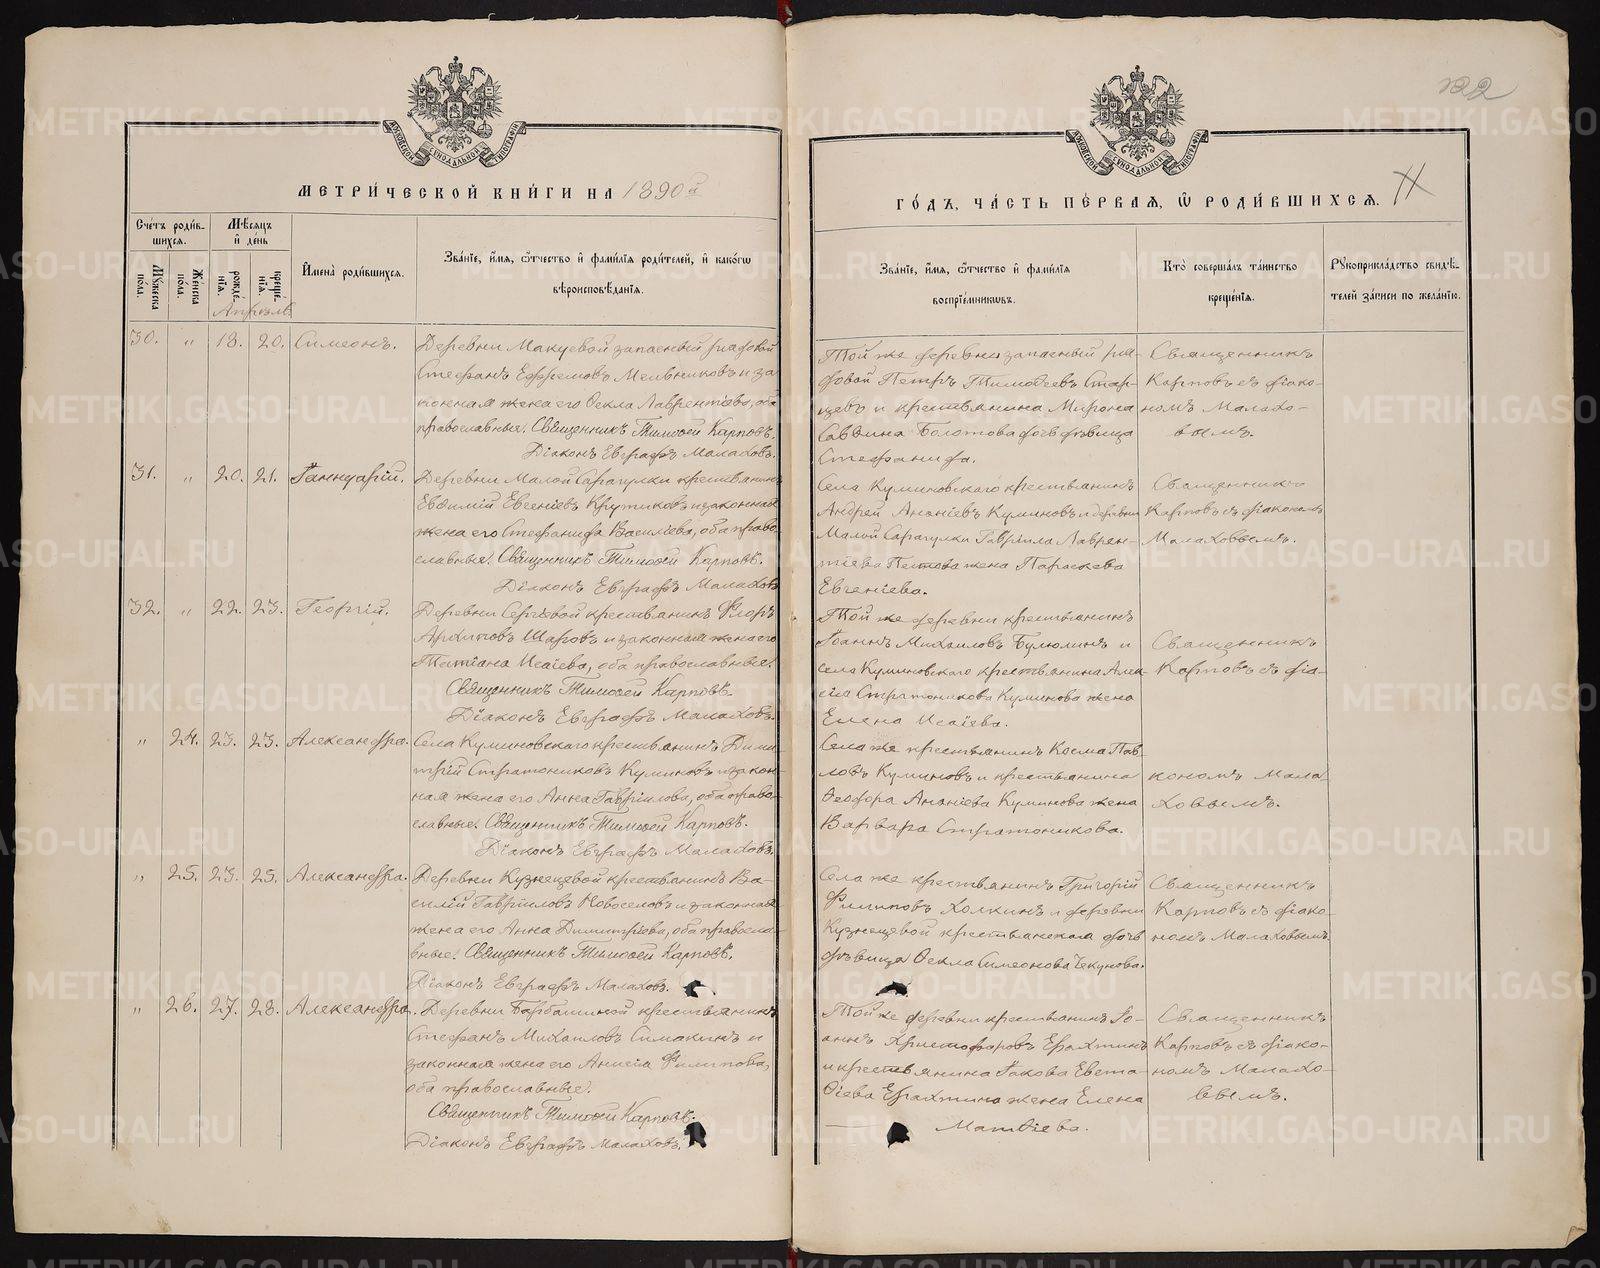 МОСКОВСКОЙ СѴНОДАЛЬНОЙ ТИПОГРАФІИ
МЕТРИ́ЧЕСКОЙ КНИ́ГИ НА 1890й
Сче́тъ роди́в-
шихся.
Му́жеска по́ла.
Же́нска по́ла.
Мѣ́сяцъ и҆ де́нь
рожде́-нїя.
креще́-нїя.
И҆мена̀ роди́вшихся.
Зва́нїе, и҆́мя, ѻ҆́тчество и҆ фами́лїя роди́телей, и҆ како́гѡ
вѣроисповѣ́данїя.
Апрѣль
30. „ 18. 20. Симеонъ.
Деревни Макуевой запасный рядовой
Стефанъ Ефремовъ Мельниковъ и за
конная жена его Ѳекла Лаврентіева, оба
православные. Священникъ Тимоѳей Карповъ.
Діаконъ Евграфъ Малаховъ.
31. „ 20. 21. Іаннуарій.
Деревни Малой Сарагулки крестьянинъ
Евѳимій Евгеніевъ Крутиковъ и законная
жена его Стефанида Василіева, оба право
славные. Священникъ Тимоѳей Карповъ.
Діаконъ Евграфъ Малаховъ
32. „ 22. 23. Георгій.
Деревни Сергіевой крестьянинъ Флоръ
Архиповъ Шаровъ и законная жена его
Татіана Исаіева, оба православные.
Священникъ Тимоѳей Карповъ.
Діаконъ Евграфъ Малаховъ.
„ 24. 23. 23. Александра.
Села Куминовскаго крестьянинъ Дими-
трій Стратониковъ Куминовъ и закон-
ная жена его Анна Гавріилова, оба право-
славные. Священникъ Тимоѳей Карповъ.
Діаконъ Евграфъ Малаховъ.
„ 25. 23. 25. Александра.
Деревни Кузнецевой крестьянинъ Ва-
силій Гавріиловъ Новоселовъ и законная
жена его Анна Димитріева, оба правосла-
вные. Священникъ Тимоѳей Карповъ.
Діаконъ Евграфъ Малаховъ.
„ 26. 27. 28. Александра.
Деревни Барбашиной крестьянинъ
Стефанъ Михаиловъ Симакинъ и
законная жена его Анисія Филипова,
оба православные.
Священникъ Тимоѳей Карповъ.
Діаконъ Евграфъ Малаховъ.
МОСКОВСКОЙ СѴНОДАЛЬНОЙ ТИПОГРАФІИ
ГО́ДЪ, ЧА́СТЬ ПЕ́РВАЯ, Ѡ҆ РОДИ́ВШИХСЯ.
Зва́нїе, и҆́мя, ѻ҆́тчество и҆ фами́лїя
воспрїе́мникѡвъ.
Кто̀ соверша́лъ та́инство
креще́нїя.
Рꙋкоприкла́дство свидѣ́-
телей за́писи по жела́нїю.
Той же деревни запасный ря-
довой Петръ Тимоѳеевъ Стар-
цевъ и крестьянина Мирона
Саввина Болотова дочь дѣвица
Стефанида.
Священникъ
Карповъ съ діако-
номъ Малахо-
вымъ.
Села Куминовскаго крестьянинъ
Андрей Ананіевъ Куминовъ и деревни
Малой Сарагулки Гавріила Лаврен-
тіева Пестова жена Параскева
Евгеніева.
Священникъ
Карповъ съ діакономъ
Малаховымъ.
Той же деревни крестьянинъ
Іоаннъ Михаиловъ Булюлинъ и
села Куминовскаго крестьянина Алек-
сія Стратоникова Куминова жена
Елена Исаіева.
Священникъ
Карповъ съ діа-
Села же крестьянинъ Косма Пав-
ловъ Куминовъ и крестьянина
Ѳеодора Ананіева Куминова жена
Варвара Стратоникова.
кономъ Мала-
ховымъ.
Села же крестьянинъ Григорій
Филиповъ Холкинъ и деревни
Кузнецевой крестьянская дочь
дѣвица Ѳекла Симеонова Чекунова.
Священникъ
Карповъ съ діако-
номъ Малаховымъ.
Той же деревни крестьянинъ Іо-
аннъ Христофоровъ Ерахтинъ
и крестьянина Іакова Евста-
ѳіева Ерахтина жена Елена
Матвіева.
Священникъ
Карповъ съ діако-
номъ Малахо-
вымъ.
METRIKI.GASO-URAL.RU